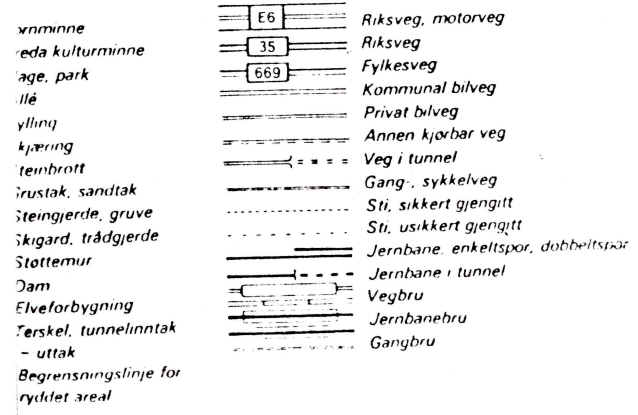 ornminne
reda kulturminne
lage, park
llé
ylling
kjæring
teinbrott
Grustak, sandtak
Steingjerde, gruve
Skigard, trådgjerde
Støttemur
Dam
Elveforbygning
Terskel, tunnelinntak
– uttak
Begrensningslinje for
ryddet areal
E6 Riksveg, motorveg
35 Riksveg
669 Fylkesveg
Kommunal bilveg
Privat bilveg
Annen kjørbar veg
Veg i tunnel
Gang-, sykkelveg
Sti, sikkert gjengitt
Sti, usikkert gjengitt
Jernbane, enkeltspor, dobbeltspor
Jernbane i tunnel
Vegbru
Jernbanebru
Gangbru